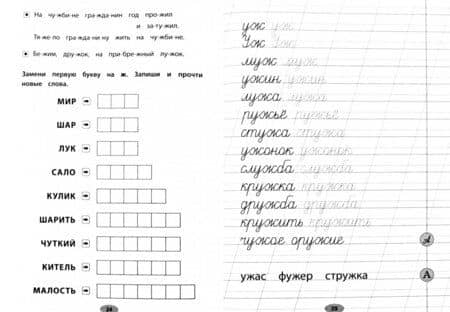 На чу-жби-не гра-жда-нин год про-жил
и за-ту-жил.
Тя-же-ло гра-жда-ни-ну жить на чу-жби-не.
Бе-жим, дру-жок, на при-бре-жный лу-жок.
Замени первую букву на ж. Запиши и прочти
новые слова.
МИР
ШАР
ЛУК
САЛО
КУЛИК
ШАРИТЬ
ЧУТКИЙ
КИТЕЛЬ
МАЛОСТЬ
24
уж уж
Уж Уж
муж муж
ужин ужин
лужа лужа
ружьё ружьё
стужа стужа
ужонок ужонок
служба служба
кружка кружка
дружба дружба
кружить кружить
чужое оружие
ужас фужер стружка
А
25